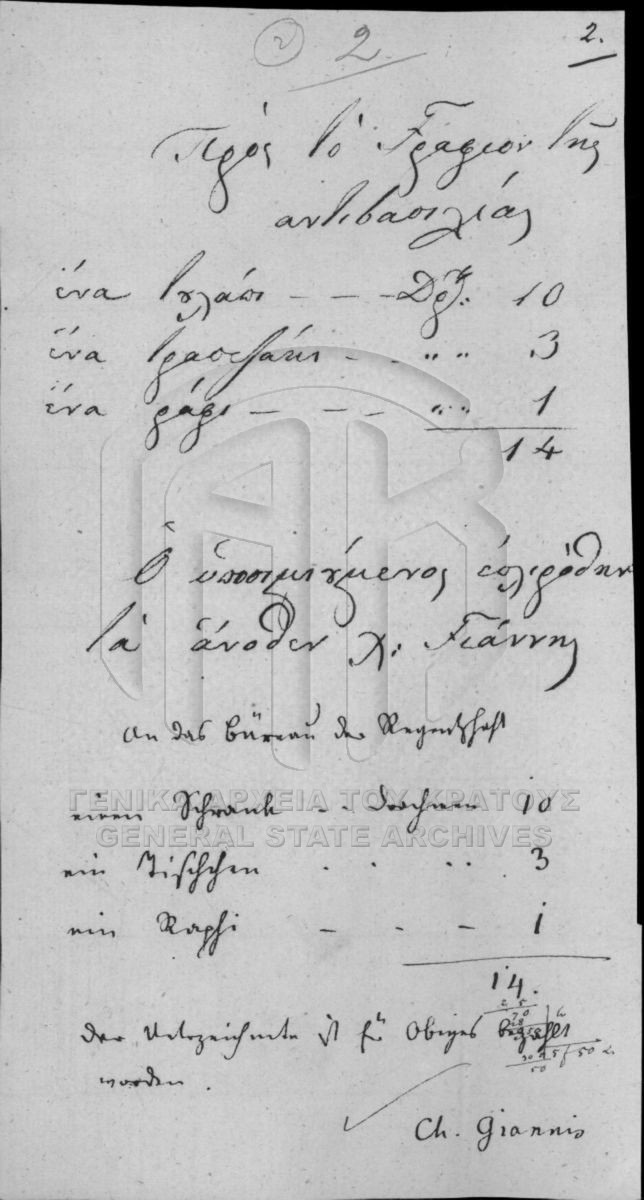 2 2 2.
Πρὸς τὸ Γραφιον τῆς
αντιβασιλιάς
ἕνα ντουλάπι - - - Δρχ: 10
ἕνα τραπεζάκι - - " " 3
ἕνα ράφι - - - " " 1
14
Ὁ ὑποσιμιούμενος ἐπλιρόθην
τὰ ἄνοθεν χ: Γιάννης
An das Büreau der Regentschaft
einen Schrank - - Drachmen 10
ein Tischchen . . . . 3
ein Raphi - - - 1
14.
der Unterzeichnete ist für Obiges bezahlt
worden.
Ch. Giannis
ΓΕΝΙΚΑ ΑΡΧΕΙΑ ΤΟΥ ΚΡΑΤΟΥΣ
GENERAL STATE ARCHIVES